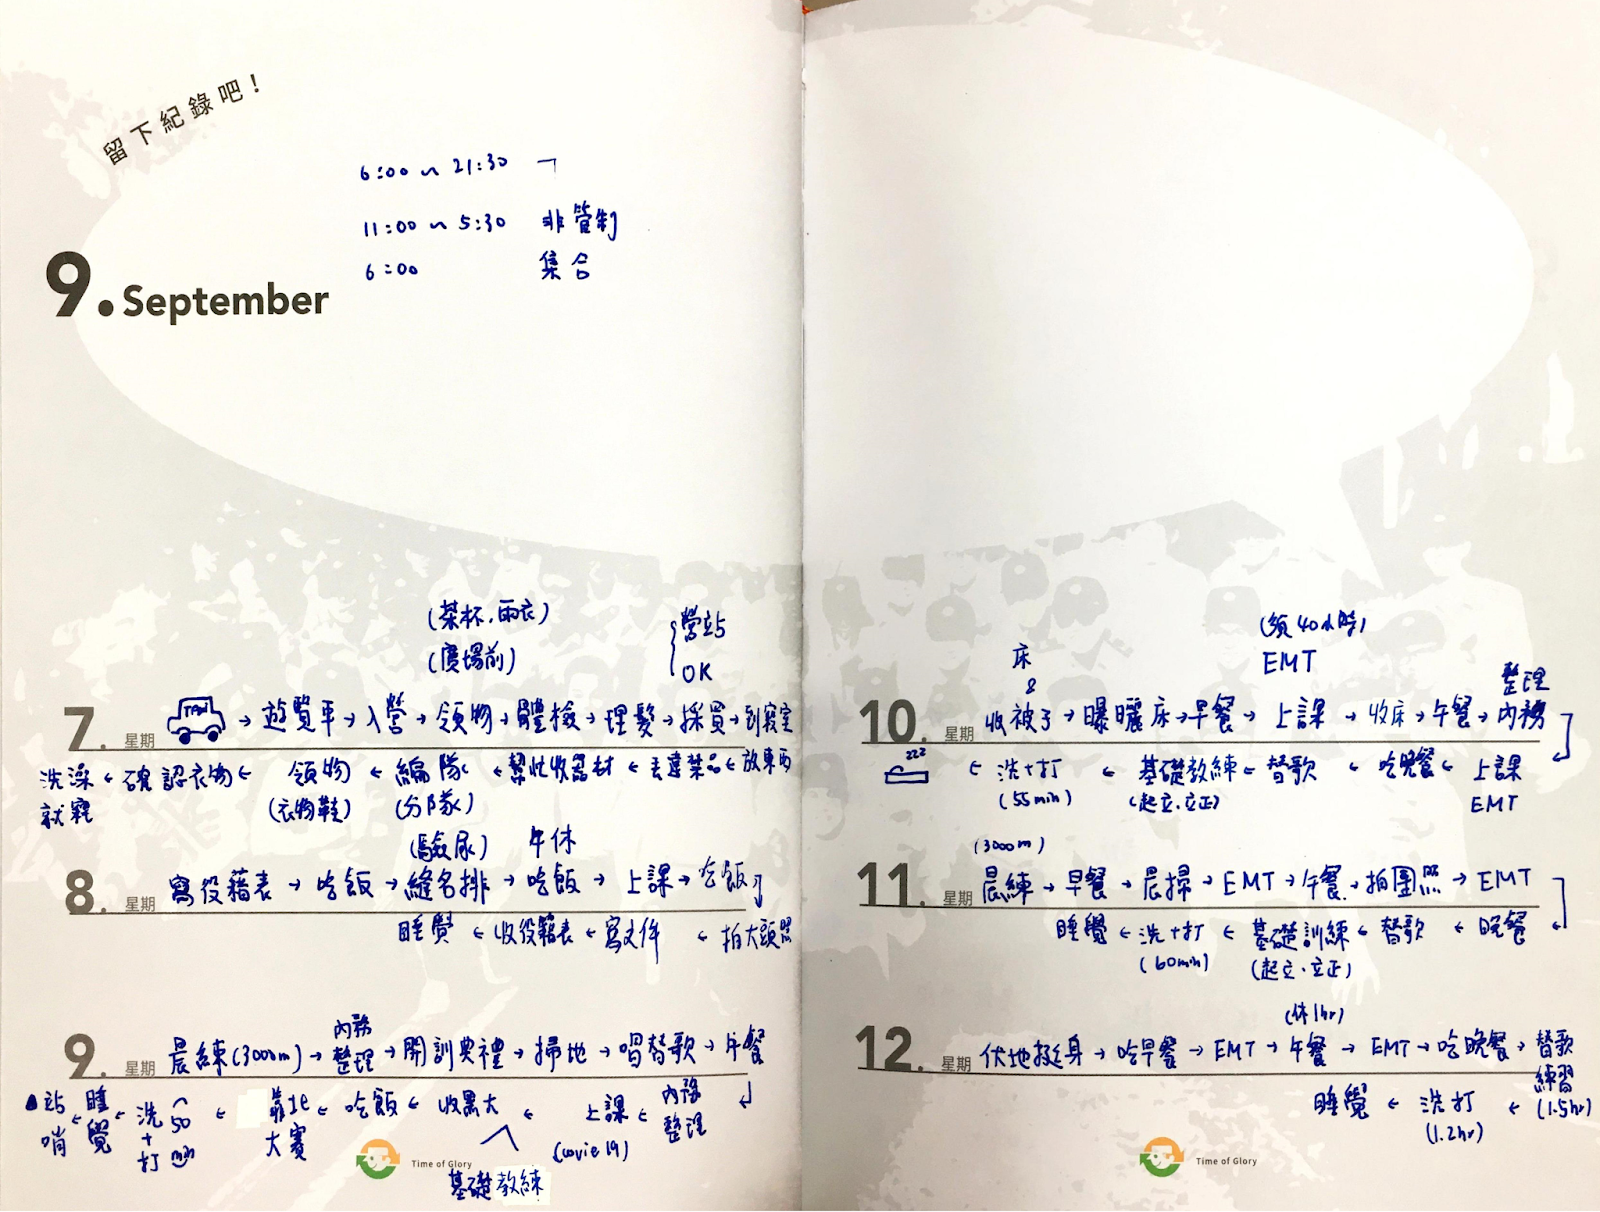 留下紀錄吧！
6:00 ~ 21:30 ㄱ
11:00 ~ 5:30 非管制
6:00 集合
9. September
(茶杯、雨衣)
(廣場前)
營站
OK
7. 星期 TAXI → 遊覽車 → 入營 → 領物 → 體檢 → 理髮 → 採買 → 到寢室
洗澡 ← 確認衣物 ← 領物 ← 編隊 ← 幫忙收器材 ← 丟違禁品 ← 放東西
就寢 (衣物鞋) (分隊)
(驗尿) 午休
8. 星期 寫役籍表 → 吃飯 → 縫名排 → 吃飯 → 上課 → 吃飯
睡覺 ← 收役籍表 ← 寫文件 ← 拍大頭照
內務
9. 星期 晨練(3000m) → 整理 → 開訓典禮 → 掃地 → 唱替歌 → 午餐
站哨 ← 睡覺 ← 洗+打 (50min) ← 靠北大賽 ← 吃飯 ← 收黑大 ← 上課 ← 內務整理
(covie 19)
基礎教練
Time of Glory
(須40小時)
床 & EMT 整理
10. 星期 收被子 → 曝曬床 → 早餐 → 上課 → 收床 → 午餐 → 內務
zzz ← 洗+打 ← 基礎教練 ← 替歌 ← 吃晚餐 ← 上課
(55min) (起立、立正) EMT
(3000m)
11. 星期 晨練 → 早餐 → 晨掃 → EMT → 午餐 → 拍團照 → EMT
睡覺 ← 洗+打 ← 基礎訓練 ← 替歌 ← 晚餐
(60min) (起立、立正)
(休1hr)
12. 星期 伏地挺身 → 吃早餐 → EMT → 午餐 → EMT → 吃晚餐 → 替歌
睡覺 ← 洗打 ← 練習
(1.2hr) (1.5hr)
Time of Glory